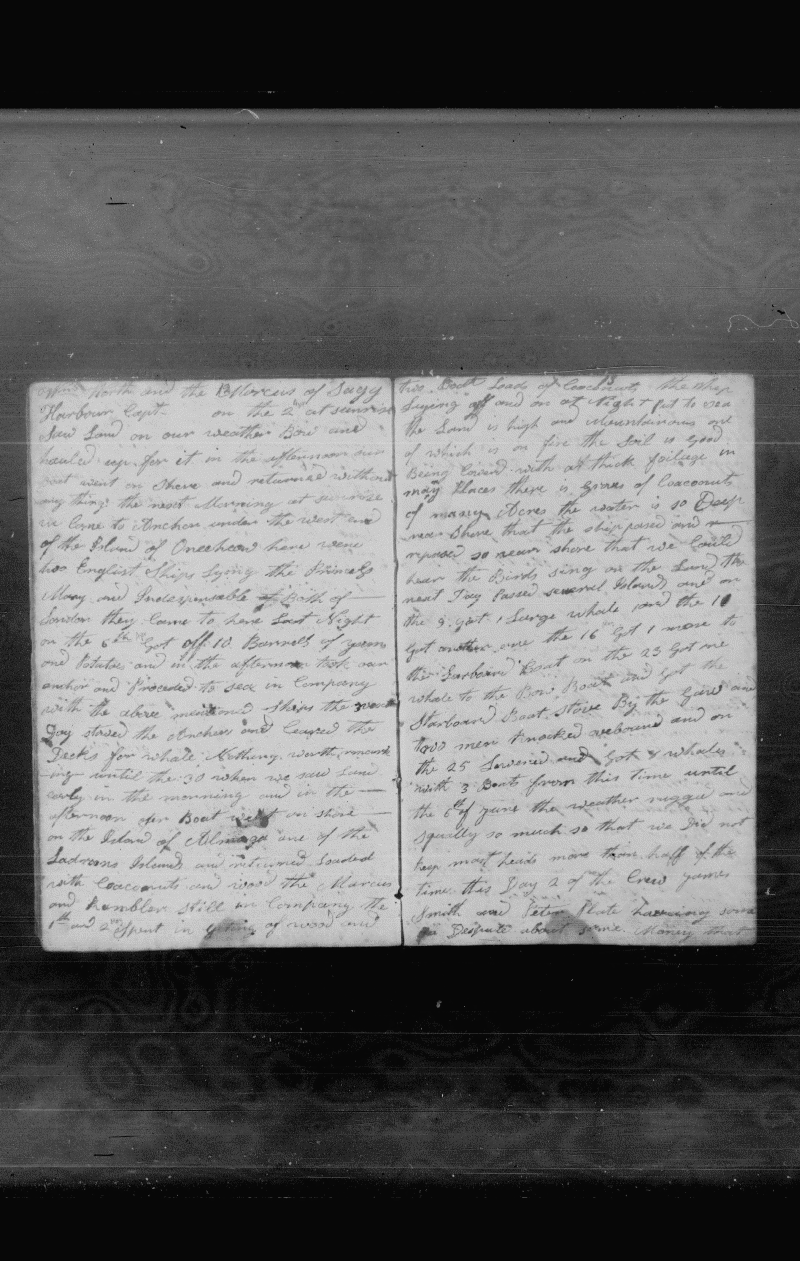 North and the Marcus of Sagg
Harbour Capt on the 2nd at sunrise
Saw Land on our weather Bow and
hauled up for it in the afternoon our
boat went on Shore and returned without
any thing the next Morning at sunrise
we Come to Anchor under the west end
of the Island of Oneehow here were
two English Ships Lying the Princes
Mary and Indespensable of Both of
London they Came to here Last Night
on the 6th we Got off 10 Barrels of yams
and Potatoes and in the afternoon took our
anchor and Proceeded to sea in Company
with the above mentioned ships the
Day stowed the Anchors and Cleared the
Decks for whale Nothing worth remark
-ing until the 30 when we saw Land
early in the morning and in the
afternoon our Boat went on shore
on the Island of one of the
Ladrons Island and returned Loaded
with Coacoanuts and wood the Marcus
and Rambler still in Company the
1st and 2nd Spent in geting of wood and
two Boat Loads of Coacoanuts the ship
Laying off and on at Night put to sea
the Land is high and Mountainous one
of which is on fire the Soil is good
Being Covered with a thick foilage in
many Places there is groves of Coacoanuts
of many Acres the water is so Deep
near Shore that the ship passed and r
repased so near shore that we Could
hear the Birds sing on the Land the
next Day Passed several Island and on
the 9 got 1 Large whale and the 11
Got another one the 16th Got 1 more to
the Larboard Boat on the 23 Got one
whale to the Bow Boat and Got the
Starboard Boat Stove By the and
two men knocked overboard and on
the 25 Lowered and Got 4 whales
with 3 Boats from this time until
the 6th of June the weather rugged and
squally so much so that we Did not
keep mast heads more than half of the
time this Day 2 of the Crew James
Smith and Peter Plate haveing some
Despute about some Money that